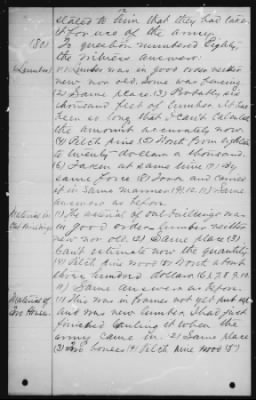 stated to him that they had taken
it for use of the army.
(80) To question numbered Eighty,
the witness answers:
(Lumber) (1) Lumber was in good order neither
new nor old. Some was fencing
(2) Same place. (3) Probably six
thousand feet of lumber. It has
been so long that I can't calculate
the amount accurately now.
(4) Pitch pine (5) Worth from eighteen
to twenty dollars a thousand.
(6) Taken at same time (7) By
same force (8) Torn and carried
it in same manner (9.10.11) Same
answers as before.
Material in out buildings (1) The material of out buildings was
in good order lumber neither
new nor old. (2) Same place (3)
Can't estimate now the quantity
(4) Pitch pine wood (5) Worth about
three hundred dollars (6.7.8.9.10.
11) Same answers as before.
Material of House (1) This was in frames not yet put up
and was new lumber. I had just
finished hauling it when the
army came in. (2) Same place
(3) houses (4) Pitch pine wood (5)